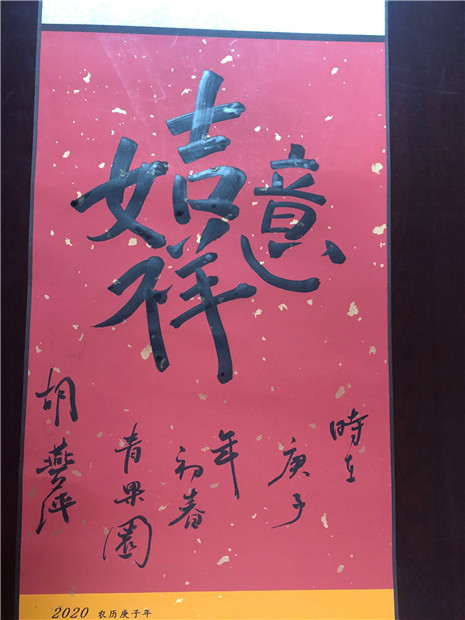 吉祥如意
時在
庚子
年
初春
青果園
胡燕萍
2020 农历庚子年